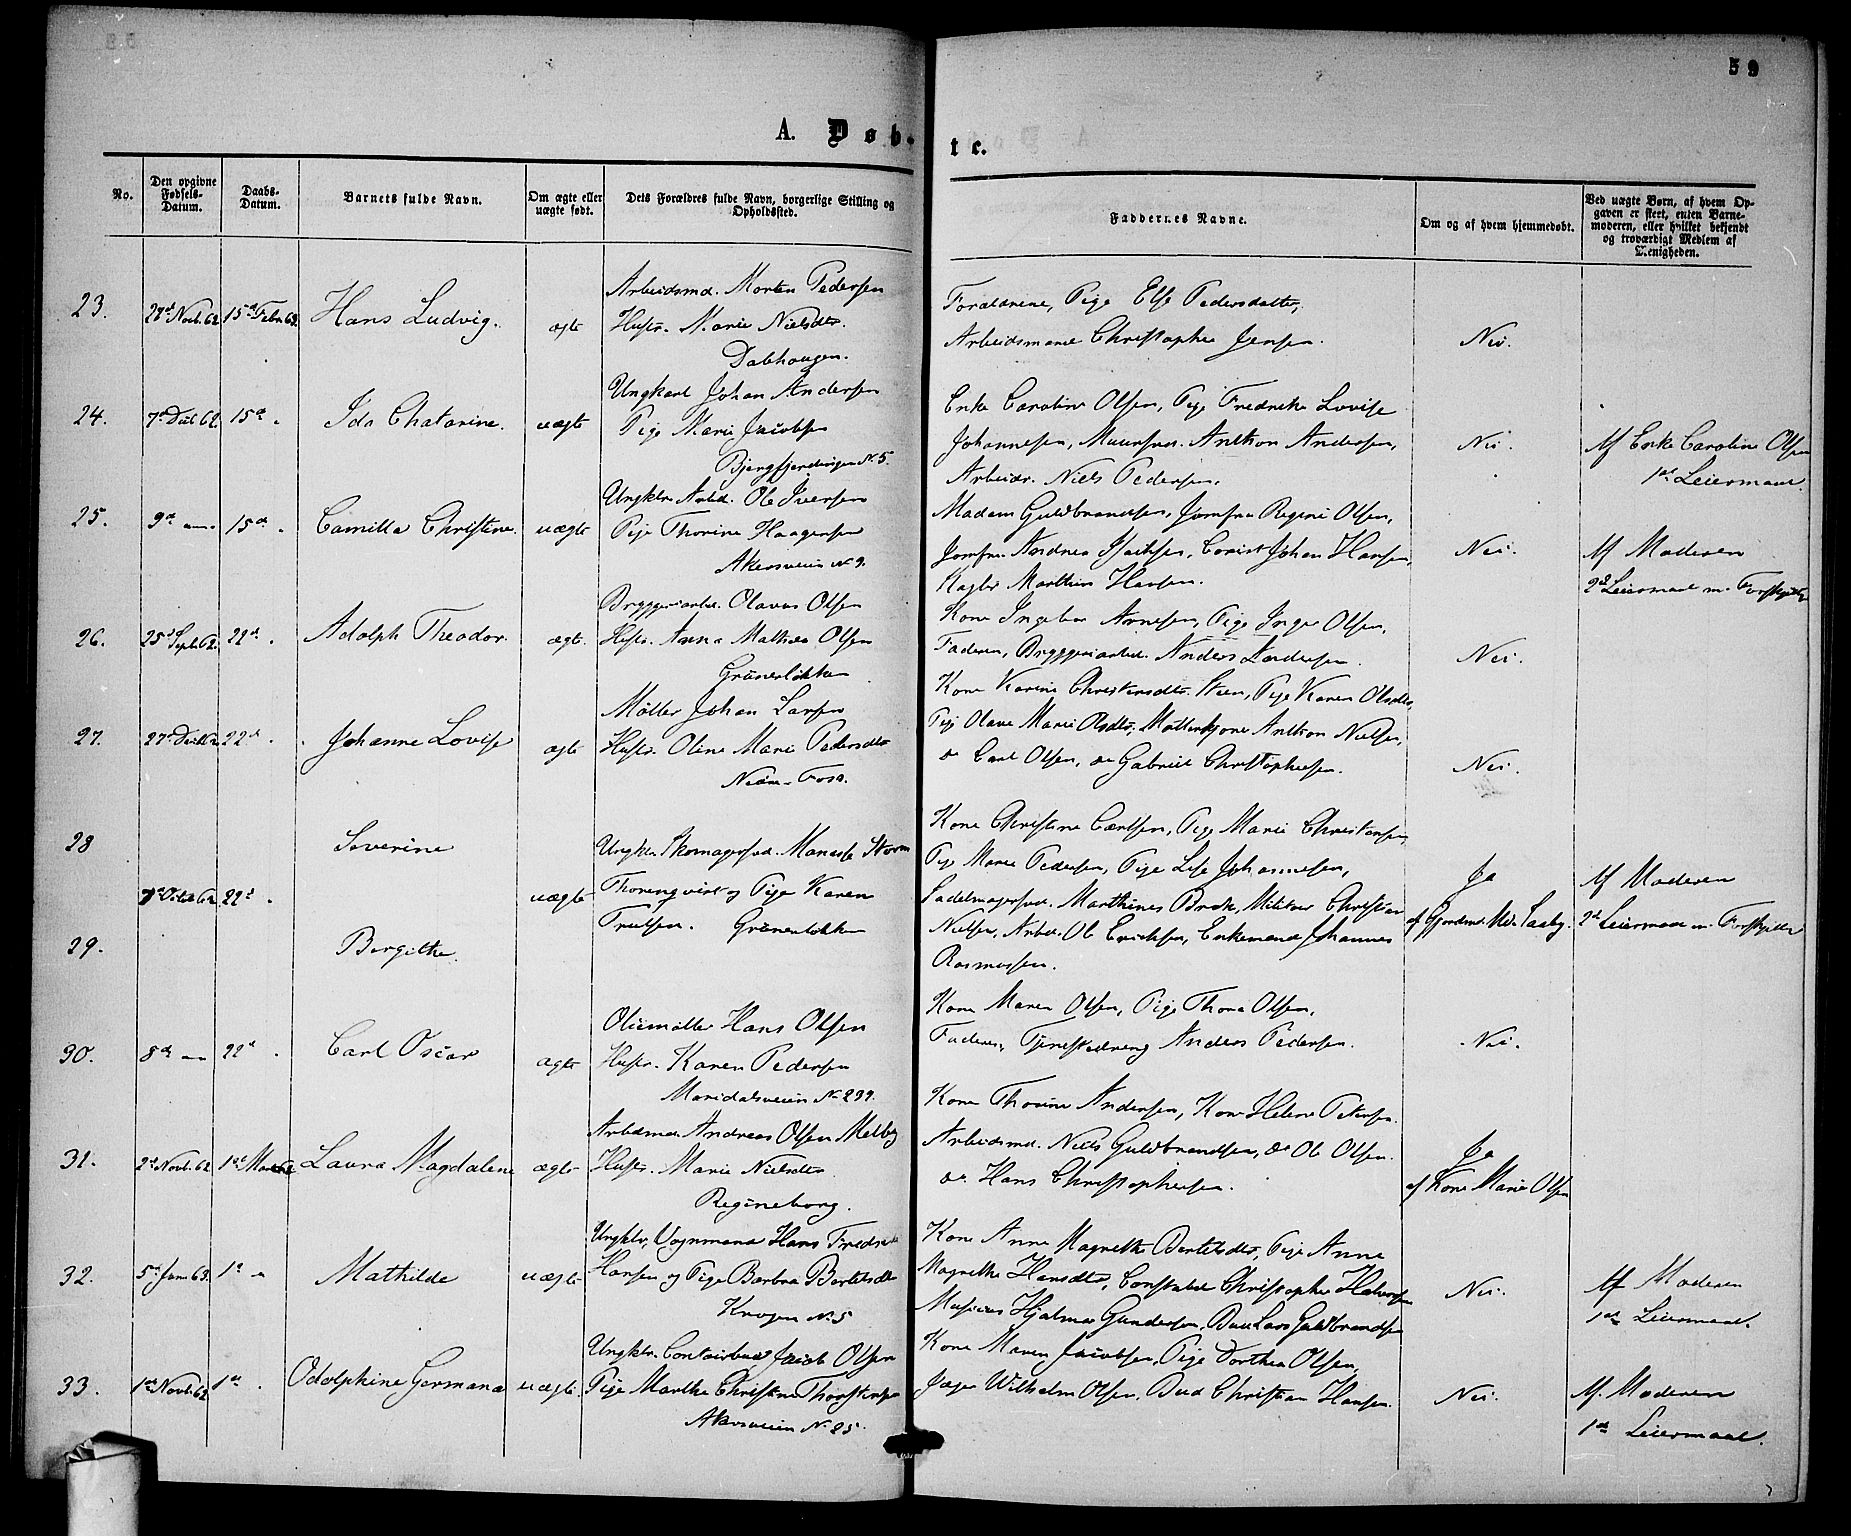 59
A. Døb-
te.
No.
Den opgivne Fødsels-Datum.
Daabs-Datum.
Barnets fulde Navn.
Om ægte eller uægte født.
Dets Forældres fulde Navn, borgerlige Stilling og Opholdssted.
Faddernes Navne.
Om og af hvem hjemmedøbt.
Ved uægte Børn, af hvem Opgaven er skeet, enten Barnemoderen, eller hvilket bekjendt og troværdigt Medlem af Menigheden.
23. 15de Febr. 63. Hans Ludvig. ægte
Arbeidsmd. Morten Pedersen
Hustr. Marie Nielsdtr.
Dalehougen.
Forældrene, Pige Else Pedersdatter,
Arbeidsmand Christopher Jensen.
Nei.
24. 7de Decb 62. 15de " Ida Chatarine. uægte
Ungkarl Johan Andersen
Pige Marie Jacobsen
Bjergfjerdingen No. 5.
Enke Caroline Olsen, Pige Fredrikke Lovise
Johannesen, Muursvd. Anthon Andersen,
Arbeidr. Niels Pedersen.
Nei.
Af Enke Caroline Olsen
1ste Leiermaal.
25. 9de " 15de " Camilla Christine. uægte
Ungklr. Arbd. Ole Iversen
Pige Thorine Haagensen
Akersveien No 9.
Madam Guldbrandsen, Jomfru Regine Olsen,
Jomfru Andrea Isachsen, Johan Hansen,
Marthin Hansen.
Nei.
Af Moderen
2det Leiermaal m. Forskjellig
26. 25de Septb 62. 22de " Adolph Theodor. ægte
Bryggeriarbd. Olavus Olsen
Hustr. Anna Mathea Olsen
Grünerløkken
Kone Ingebor Arnesen, Pige Inger Olsen,
Faderen, Bryggeriarbd. Anders Andersen.
Nei.
27. 27de Decb 62 22de " Johanne Lovise ægte
Møller Johan Larsen
Hustr. Oline Marie Pedersdtr
Foss.
Kone Karine Christensdtr. Steen, Pige Karen Olsdtr,
Pige Olave Marie Olsdtr, Anthon Nielsen,
do Carl Olsen, do Gabriel Christophersen.
Nei.
28 Severine
7de Octob 62 22de " uægte
29. Bergithe.
Ungklr. Skomagersvd. Storm
Thorenqvist og Pige Karen
Truelsen. Grünerløkken
Kone Christine Carlsen, Pige Marie Christensen,
Pige Maren Pedersen, Pige Lise Johannesen,
Sadelmagersvd. Marthines Brek, Militær Christian
Nielsen, Arbd. Ole Erichsen, Enkemand Johannes
Rasmussen.
Ja
af Gjordemd. Mad. Saxby.
Af Moderen
2det Leiermaal m. Forskjellig
30. 8de " 22de " Carl Oscar ægte
Oliemøller Hans Olsen
Hustr. Karen Pedersen
Maridalsveien No 299.
Kone Maren Olsen, Pige Thora Olsen,
Faderen, Tjenestedreng Anders Pedersen.
Nei.
31. 2den Novb. 62 1ste Marts 63 Laura Magdalene ægte
Arbdsmd. Andreas Olsen Melby
Hustr. Marie Nielsdtr
Regineborg.
Kone Thorine Andersen, Kone Helene Petersen.
Arbeidsmd. Niels Guldbrandsen, do Ole Olsen.
do. Hans Christophersen.
Ja
af Kone Marie Olsen
32. 5te Janr 63. 1ste " Mathilde uægte
Ungklr, Vognmand Hans Fredrik
Hansen og Pige Barbra Bertelsdtr
Krogen No. 5
Kone Anne Magrethe Bertelsdtr, Pige Anne
Magrethe Hansdtr, Constabel Christopher Halvorsen
Musicus Hjalmar Gundersen, Bud Lars Guldbrandsen
Nei.
Af Moderen
1ste Leiermaal.
33. 1ste Novb. 62 1ste " Odolphine Germana uægte
Ungklr. Contoirbud Jacob Olsen
Pige Marthe Christine Thorstensen
Akersveien No. 25.
Kone Maren Jacobsen, Pige Dorthea Olsen,
Jæger Wilhelm Olsen, Bud Christian Hansen.
Nei.
Af. Moderen
1ste Leiermaal.